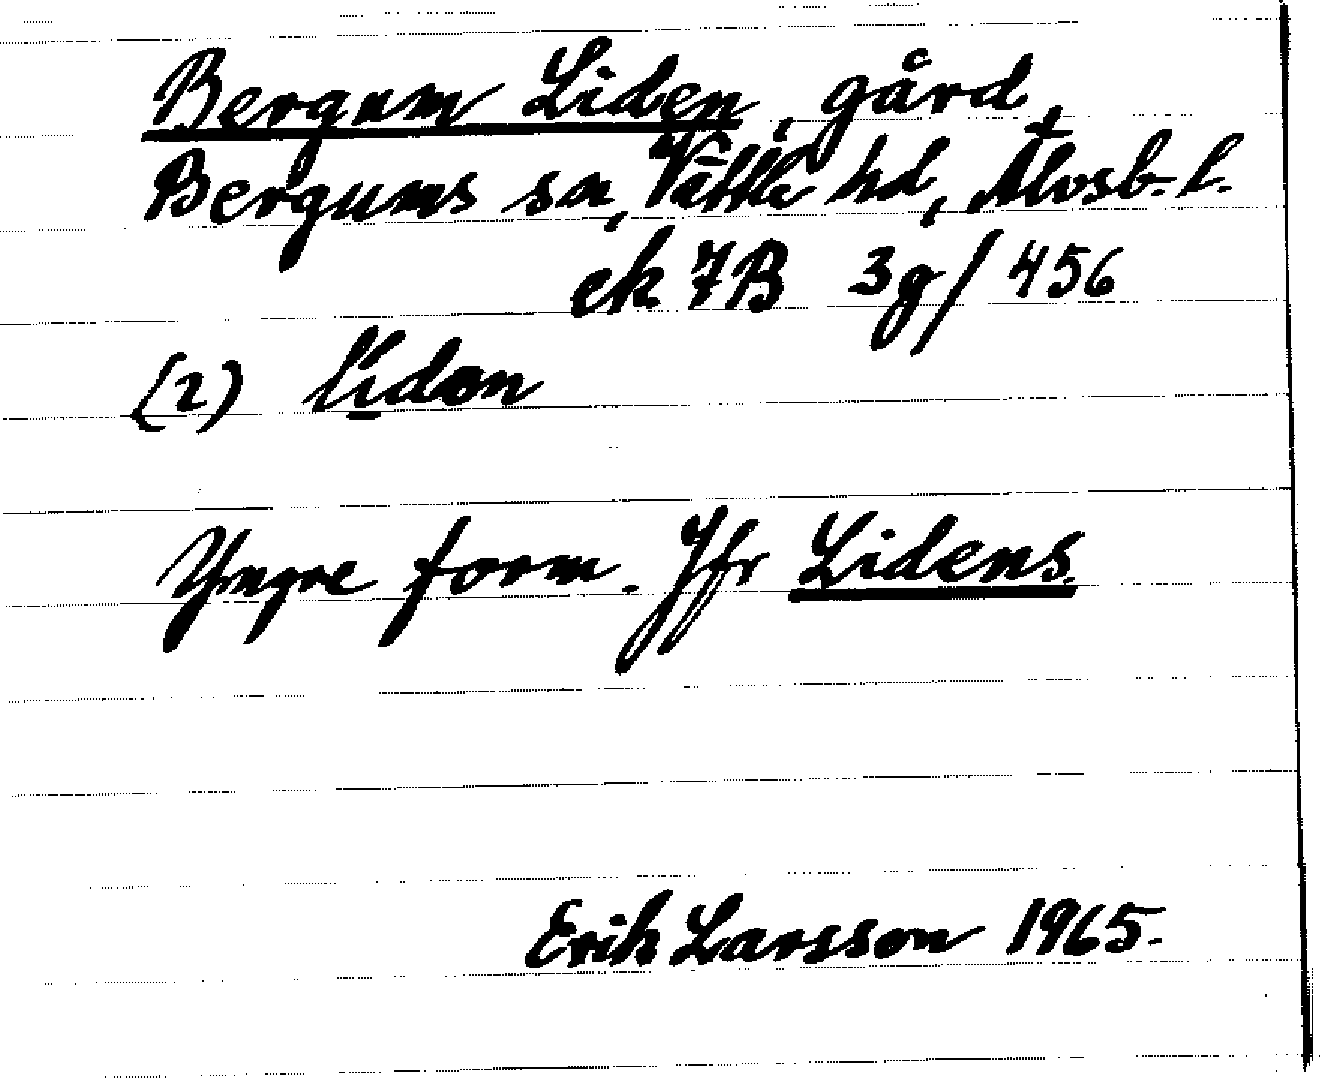 Bergum Liden, gård,
Bergums sn, Vättle hd, Älvsb. l.
ek 7B 3g/456
(2) lídan
Yngre form. Jfr Lidens.
Erik Larsson 1965.